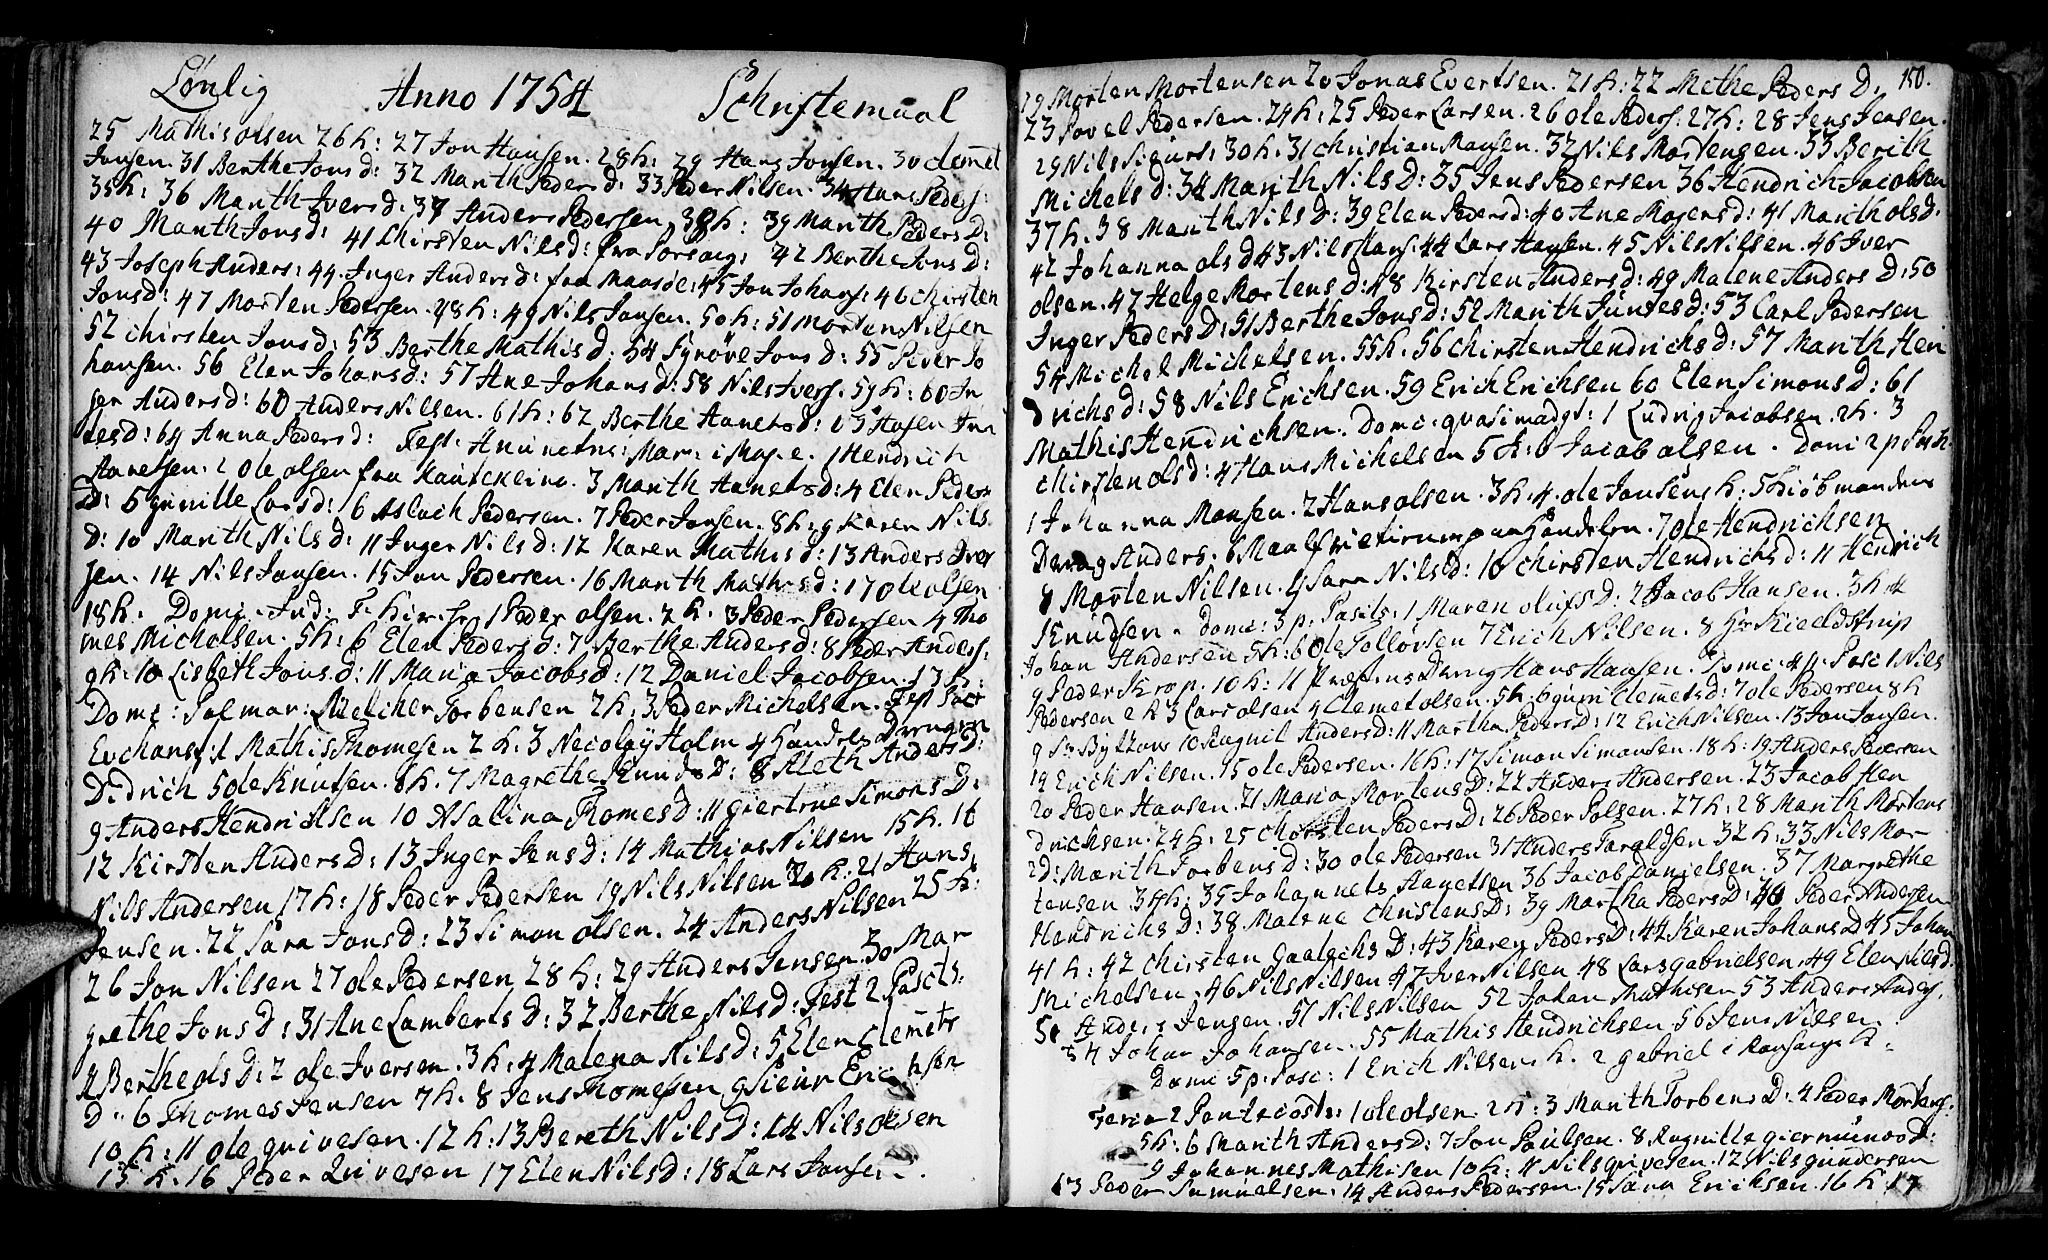 Lønlig Anno 1754 Schriftemaal
25 Mathis olsen 26 h: 27 Jon Hansen. 28 h: 29 Hans Jonsen. 30 clemet
Jonsen. 31 Berthe Jons d: 32 Marith Peders d: 33 Peder Nilsen. 34 Hans Peders:
35 h: 36 Marith Ivers d: 37 Anders Pedersen 38 h: 39 Marith Peders D:
40 Marith Jons d: 41 Chirsten Nils d: fra Porsang: 42 Berthe Jons D:
43 Joseph Anders: 44 Inger Anders d: fra Maasøe: 45 Jon Johans: 46 chirsten
Jons d: 47 Morten Pedersen. 48 h: 49 Nils Jonsen. 50 h: 51 Morten Nilsen
52 chirsten Jons d: 53 Berthe Mathis d: 54 Syrøve Jons d: 55 Peder Jo
hansen. 56 Elen Johans d: 57 Ane Johans d: 58 Nils Ivers. 59 h: 60 In
ger Anders d: 60 Anders Nilsen. 61 h: 62 Berthe Aanets d: 63
tes d: 64 Anna Peders d: Fest: Anuncans: Mar: 1 Hendrich
Aanetsen. 2 ole olsen fra Kautokeino. 3 Marith Aanets d: 4 Elen Peders
D: 5 gunille Lars d: 6 Aslach Pedersen. 7 Peder Jonsen. 8 h: 9 Karen Nils
D: 10 Marith Nils d: 11 Inger Nils d: 12 Karen Mathis d: 13 Anders Iver
sen. 14 Nils Jonsen. 15 Jon Pedersen. 16 Marith Mathis d: 17 ole olsen
18 h. Domi: Jud: 1 Peder olsen. 2 h. 3 Peder Pedersen 4 Tho
mes Michelsen. 5 h: 6 Elen Peders d: 7 Berthe Anders d: 8 Peder Anders:
9 h: 10 Lisbeth Jons d: 11 Maria Jacobs d: 12 Daniel Jacobsen. 13 h:
Domi: Palmar: 1 Melcher Torbensen 2 h: 3 Peder Michelsen. Fest
Euchans: 1 Mathis Thomesen 2 h: 3 Necolay Holm 4 Handels Drengen
Didrich 5 ole Knutsen. 6 h. 7 Magrethe Knuds D: 8 Aleth Anders D:
9 Anders Hendrichsen 10 Asalina Thomes d: 11 giertrue Simons D:
12 Kirsten Anders D: 13 Inger Jens D: 14 Mathias Nilsen 15 h. 16
Nils Andersen 17 h: 18 Peder Pedersen 19 Nils Nilsen 20 h: 21 Hans
Jensen. 22 Sara Jons D: 23 Simon olsen. 24 Anders Nilsen 25 h:
26 Jon Nilsen 27 ole Pedersen 28 h: 29 Anders Jensen. 30 Mar
grethe Jons D: 31 Ane Lamberts D: 32 Berthe Nils D: Fest 2 Pasch:
1 Berthe ols D: 2 ole Iversen. 3 h: 4 Malena Nils D: 5 Elen Clemets
D: 6 Thomes Jensen 7 h. 8 Jens Thomesen 9 Eric hsen
10 h: 11 ole quivesen. 12 h: 13 Bereth Nils D: 14 Nils olsen
15 h. 16 Peder Quivesen 17 Elen Nils d: 18 Lars Jonsen.
150.
19 Morten Mortensen 20 Jonas Evertsen. 21 h: 22 Methe Peders D.
23 Povel Pedersen. 24 h: 25 Peder Larsen. 26 ole Peders: 27 h: 28 Jens Jensen.
29 Nils Sigurs: 30 h: 31 christian Monsen. 32 Nils Mortensen. 33 Berith
Michels d: 34 Marith Nils D: 35 Jens Pedersen 36 Hendrich Jacobsen
37 h. 38 Marith Nils d: 39 Elen Peders d: 40 Ane Mogens d: 41 Marith ols d.
42 Johanna ols d 43 Nils Hans: 44 Lars Hansen. 45 Nils Nilsen. 46 Iver
olsen. 47 Helge Mortens d: 48 Kirsten Anders d: 49 Malene Anders D: 50
Inger Peders D: 51 Berthe Jons d: 52 Marith Juntes d: 53 Carl Pedersen
54 Michel Michelsen. 55 h. 56 Chirsten Hendrichs d: 57 Marith Hen
drichs d: 58 Nils Erichsen. 59 Erich Erichsen 60 Elen Simons D: 61
Mathis Hendrichsen. Domi: quasimodgt: 1 Ludvig Jacobsen. 2 h. 3
chirsten ols d: 4 Hans Michelsen 5 h: 6 Jacob olsen. Domi 2 p Pasch.
1 Johanna Monsen. 2 Hans olsen. 3 h. 4. ole Jonsen h: 5 Kiöbmandens
Dreng Anders. 6 paa Handelen. 7 ole Hendrichsen
8 Morten Nilsen. 9 Sara Nils d: 10 chirsten Hendrichs d: 11 Hendrich
Knudsen. Domi: 3 p: Pasch: 1 Maren olufs D: 2 Jacob Hansen. 3 h 4
Johan Andersen 5 h: 6 ole Tollorsen 7 Erich Nilsen. 8 Hr Kieldstrup
9 Peder Krop. 10 h: 11 Præstens Dreng Hans Hansen. Domi 4 p: Pasc 1 Nils
Pedersen 2 h 3 Lars olsen 4 Clemet olsen. 5 h. 6 guri Clemets d: 7 ole Pedersen 8 h
9 10 Ragnil Anders d: 11 Martha Peders D: 12 Erich Nilsen. 13 Jon Jonsen.
14 Erich Nilsen. 15 ole Pedersen. 16 h: 17 Simon Simonsen. 18 h: 19 Anders Pedersen
20 Peder Hansen. 21 Maria Mortens D: 22 Anders Andersen. 23 Jacob Hen
drichsen. 24 h: 25 chirsten Peders D: 26 Peder Polsen. 27 h: 28 Marith Mortens
D: Marith Torbens D: 30 ole Pedersen 31 Anders Taraldsen 32 h: 33 Nils Mor
tensen 34 h: 35 Johannets Aanetsen 36 Jacob Danielsen. 37 Margrethe
Hendrichs D: 38 Malene Christens D: 39 Martha Peders D: 40 Peder Andersen
41 h: 42 Chirsten Gaalachs D: 43 Karen Peders D: 44 Karen Johans D 45 Johan
Michelsen. 46 Nils Nilsen 47 Iver Nilsen 48 Lars gabrielsen. 49 Elen Nils d.
50 Anders Jensen. 51 Nils Nilsen 52 Johan Mathisen 53 Anders Anders.
54 Johan Johansen. 55 Mathis Hendrichsen. 56 Jens Nilsen.
Domi 5 p: Pasc: 1 Erich Nilsen h. 2 gabriel i
Feria 2 Pentecost: 1 ole olsen. 2 h: 3 Marith Torbens D: 4 Peder Mortens:
5 h: 6 Marith Anders d: 7 Jon Poulsen. 8 Ragnille giermunds D:
9 Johannes Mathisen 10 h: 11 Nils quivesen. 12 Nils gundersen
13 Peder Samuelsen: 14 Anders Pedersen. 15 Sara Erichsen. 16 h 17